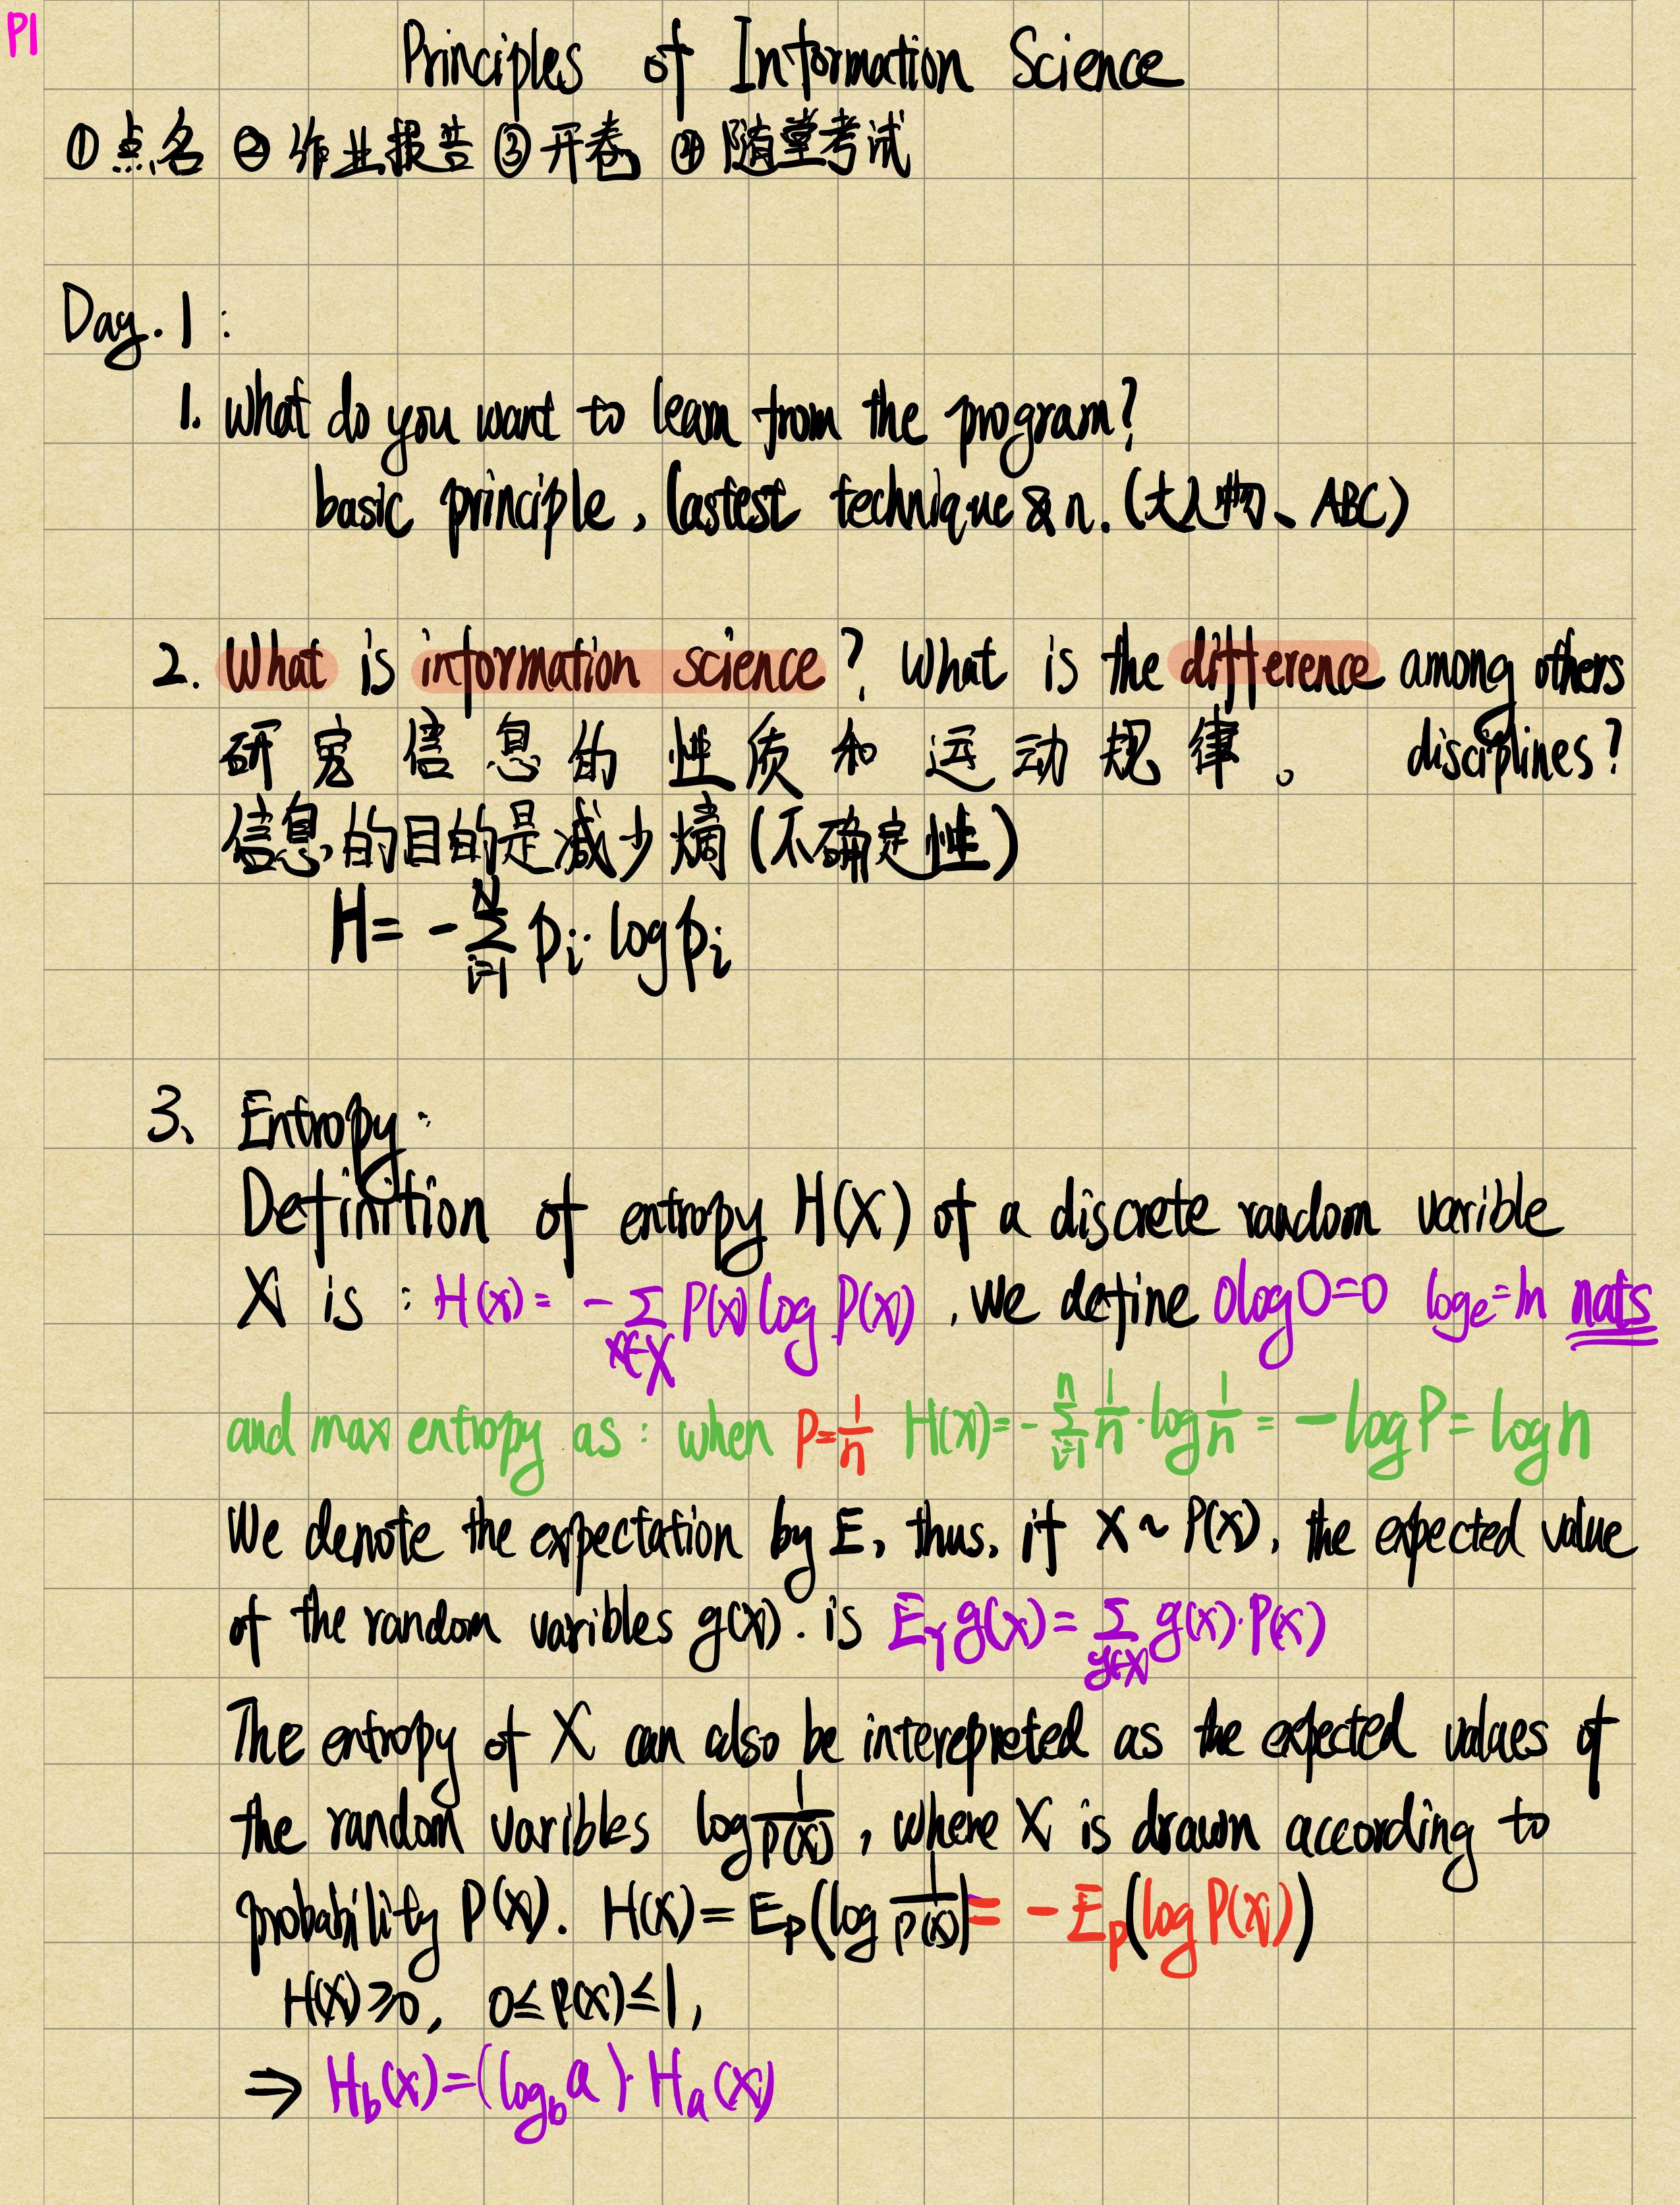 P1
Principles of Information Science
①点名 ②作业报告 ③开卷 ④随堂考试
Day. 1 :
1. What do you want to learn from the program?
basic principle, lastest technique & n. (大人物、ABC)
2. What is information science? What is the difference among others
disciplines?
研究信息的性质和运动规律。
信息的目的是减少熵(不确定性)
H = - ∑_{i=1}^{N} p_i · log p_i
3、 Entropy:
Definition of entropy H(X) of a discrete random varible
X is : H(x) = - ∑_{x∈X} P(x) log P(x) , we define 0log0=0 log_e=ln nats
and max entropy as : when P=1/n H(x)=- ∑_{i=1}^{n} 1/n · log 1/n = -log P = log n
We denote the expectation by E, thus, if X ~ P(x), the expected value
of the random varibles g(x). is E_γ g(x) = ∑_{g(x)} g(x)·P(x)
The entropy of X can also be interepreted as the expected values of
the random varibles log 1/P(x) , where X is drawn according to
probability P(x). H(x) = E_P(log 1/P(x)) = -E_P(log P(x))
H(x) ≥ 0, 0 ≤ P(x) ≤ 1,
⇒ H_b(x) = (log_b a) · H_a(x)